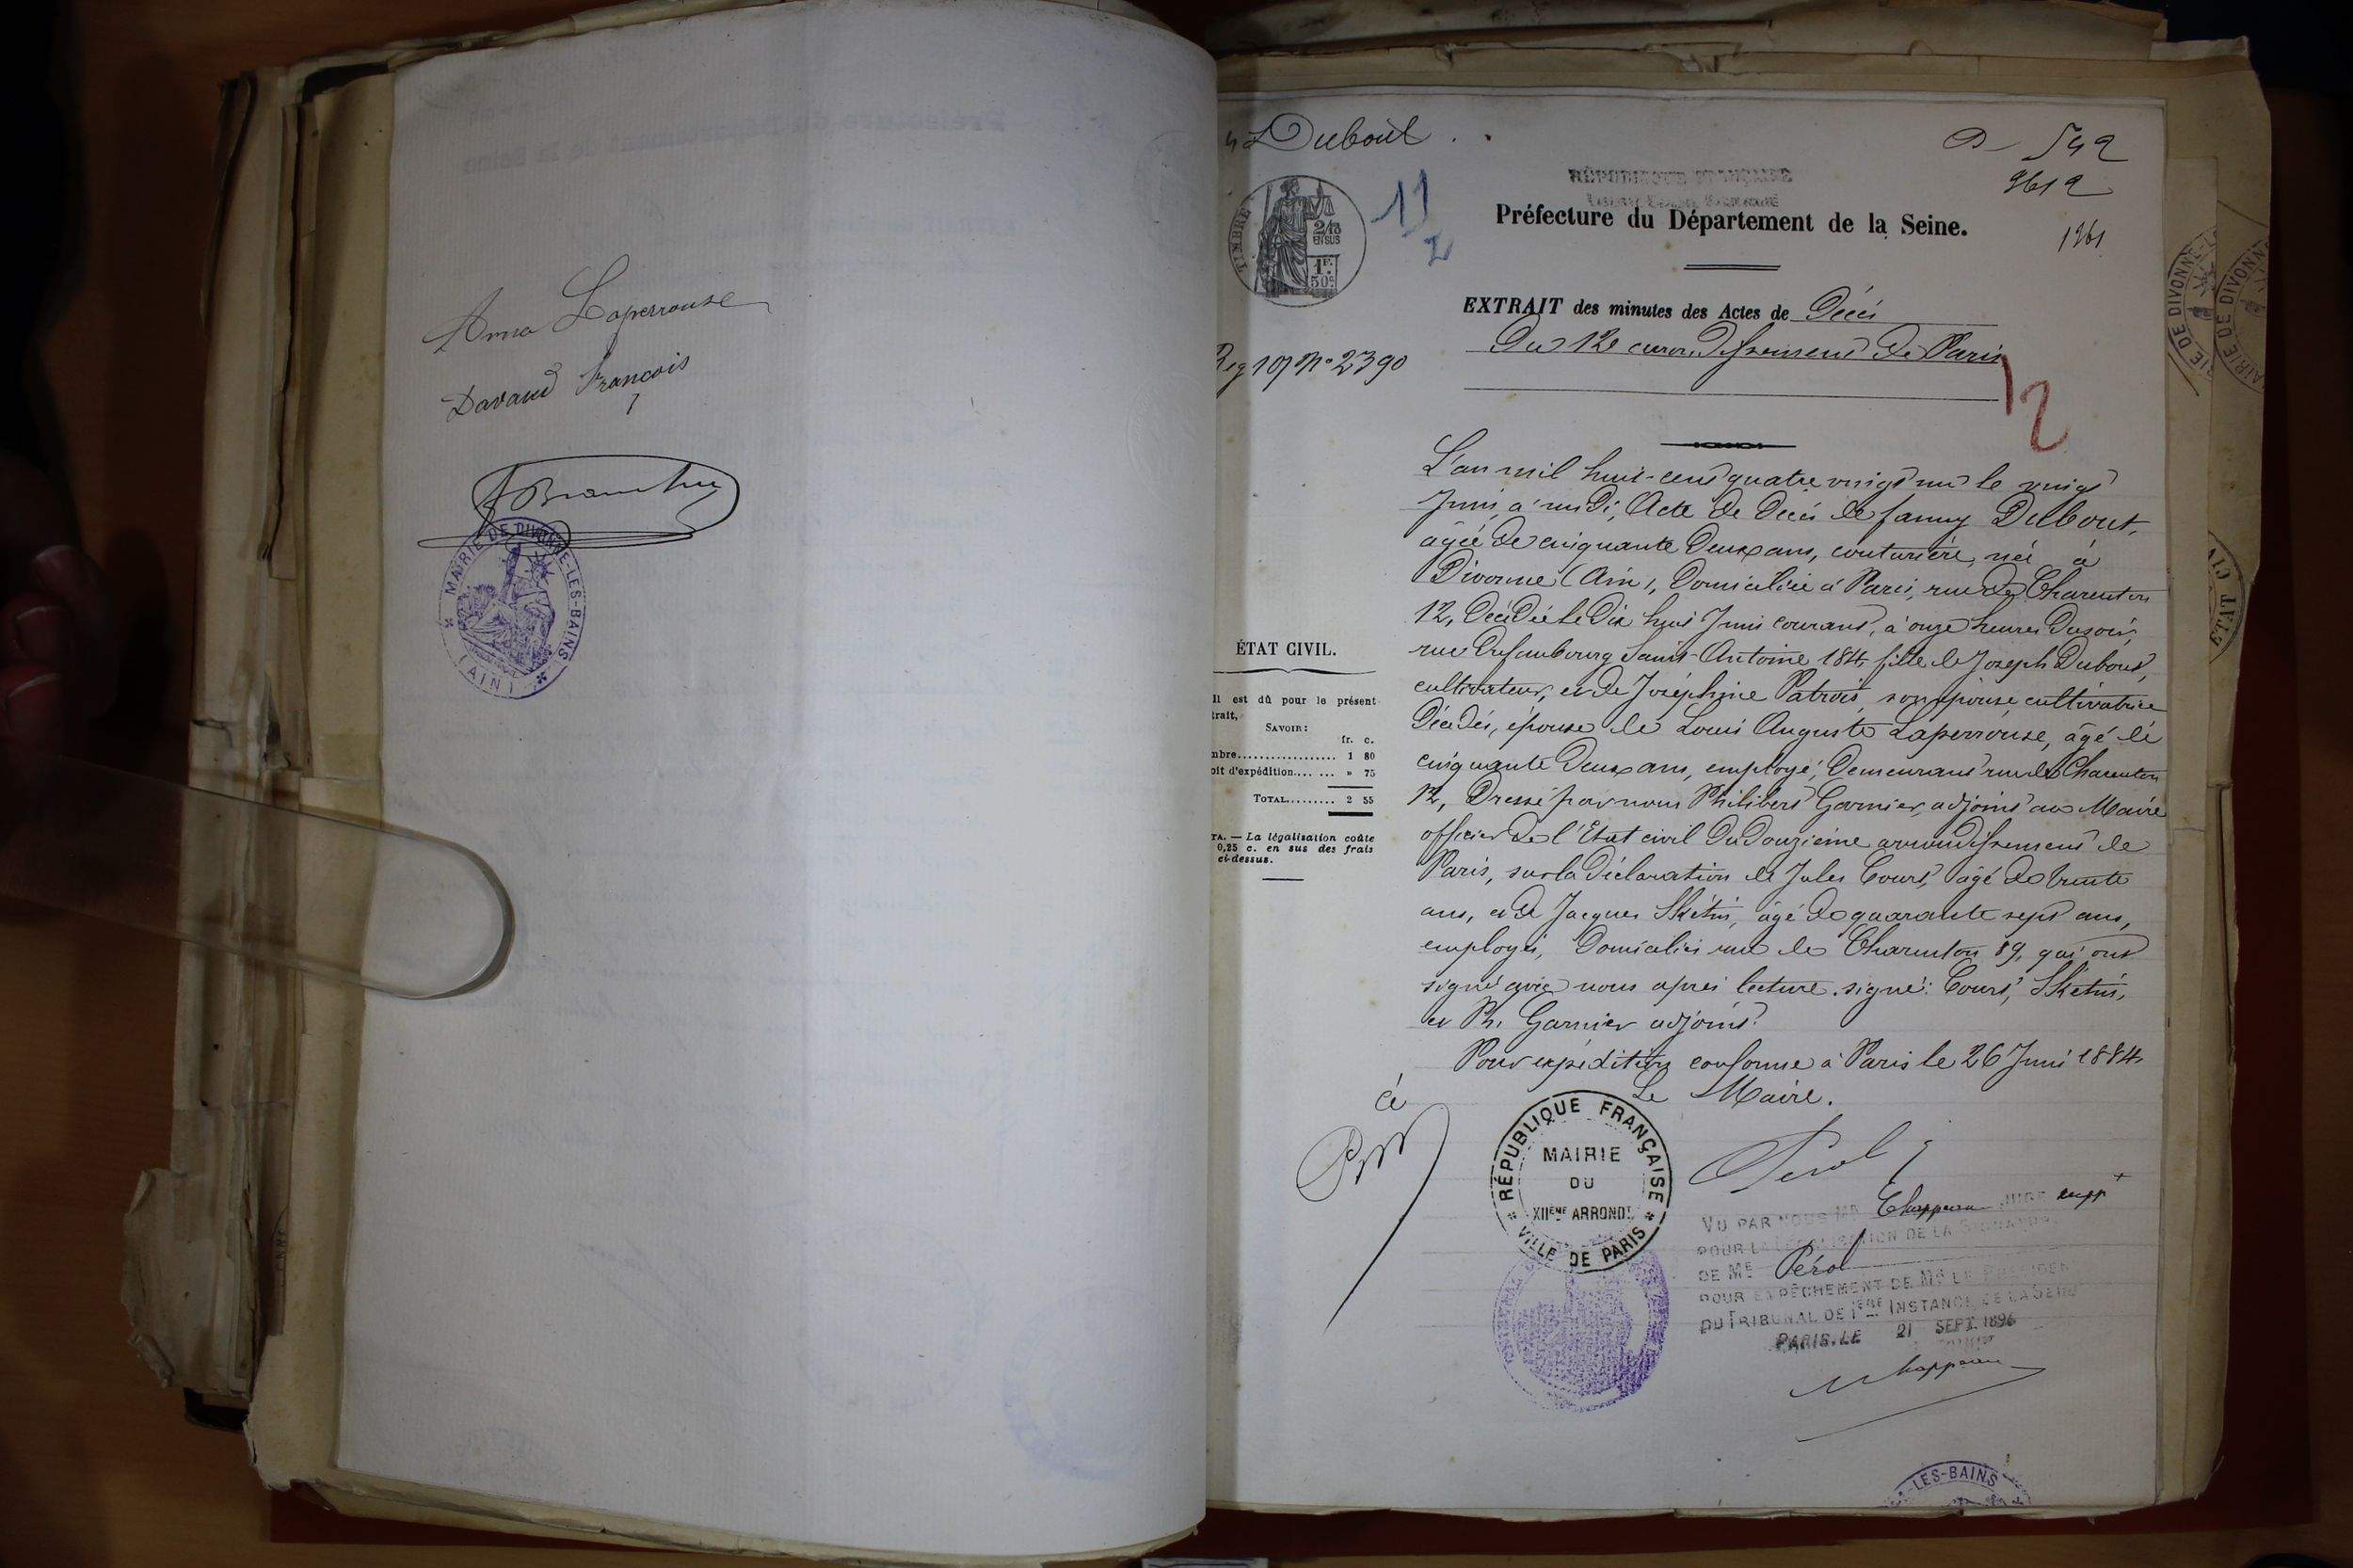 Anna Laperrouse
Davaud François
MAIRIE DE DIVONNE-LES-BAINS
(AIN)
Dubout
D 542
9612
1261
11
2
TIMBRE
2/10
EN SUS
1F.
50c
RÉPUBLIQUE FRANÇAISE
Préfecture du Département de la Seine.
EXTRAIT des minutes des Actes de Décès
Du 12e arrondissement de Paris
Reg 107 No 2390
12
L'an mil huit-cent quatre vingt un le vingt
Juin, à midi, Acte de Décès de fanny Dubout,
âgée de cinquante deux ans, couturière, née à
Divonne (Ain), Domiciliée à Paris, rue de Charenton
12, Décédée le Dix huit Juin courant, à onze heures Du soir,
rue Du faubourg Saint-Antoine 184, fille de Joseph Dubout,
cultivateur, et de Joséphine Patrois, son épouse cultivatrice
Décédés, épouse de Louis Auguste Laperrouse, âgé de
cinquante Deux ans, employé, Demeurant rue de Charenton
12, Dressé par nous Philibert Garnier, adjoint au Maire
officier de l'Etat civil Du Douzième arrondissement de
Paris, sur la Déclaration de Jules Court, âgé de trente
ans, et de Jacques Skétin, âgé de quarante sept ans,
employés, Domiciliés rue de Charenton 89, qui ont
signé avec nous après lecture. signé: Court, Skétin,
et Ph. Garnier adjoint.
Pour expédition conforme à Paris le 26 Juin 1884
Le Maire.
ÉTAT CIVIL.
Il est dû pour le présent
trait,
SAVOIR:
fr. c.
mbre.................. 1 80
oit d'expédition.... ... » 75
TOTAL........ 2 55
TA. — La légalisation coûte
0,25 c. en sus des frais
ci-dessus.
cé
RÉPUBLIQUE FRANÇAISE
MAIRIE
DU
XIIÈME ARRONDT
VILLE DE PARIS
Pérol
VU PAR NOUS MR Chappeau JUGE suppt
POUR LA LÉGALISATION DE LA SIGNATURE
DE ME Pérol
POUR EMPÊCHEMENT DE MR LE PRÉSIDENT
DU TRIBUNAL DE 1ÈRE INSTANCE DE LA SEINE
PARIS, LE 21 SEPT. 1896
Chappeau
-LES-BAINS
DE DIVONNE-L
DE DIVONN
AIRIE
ETAT CI